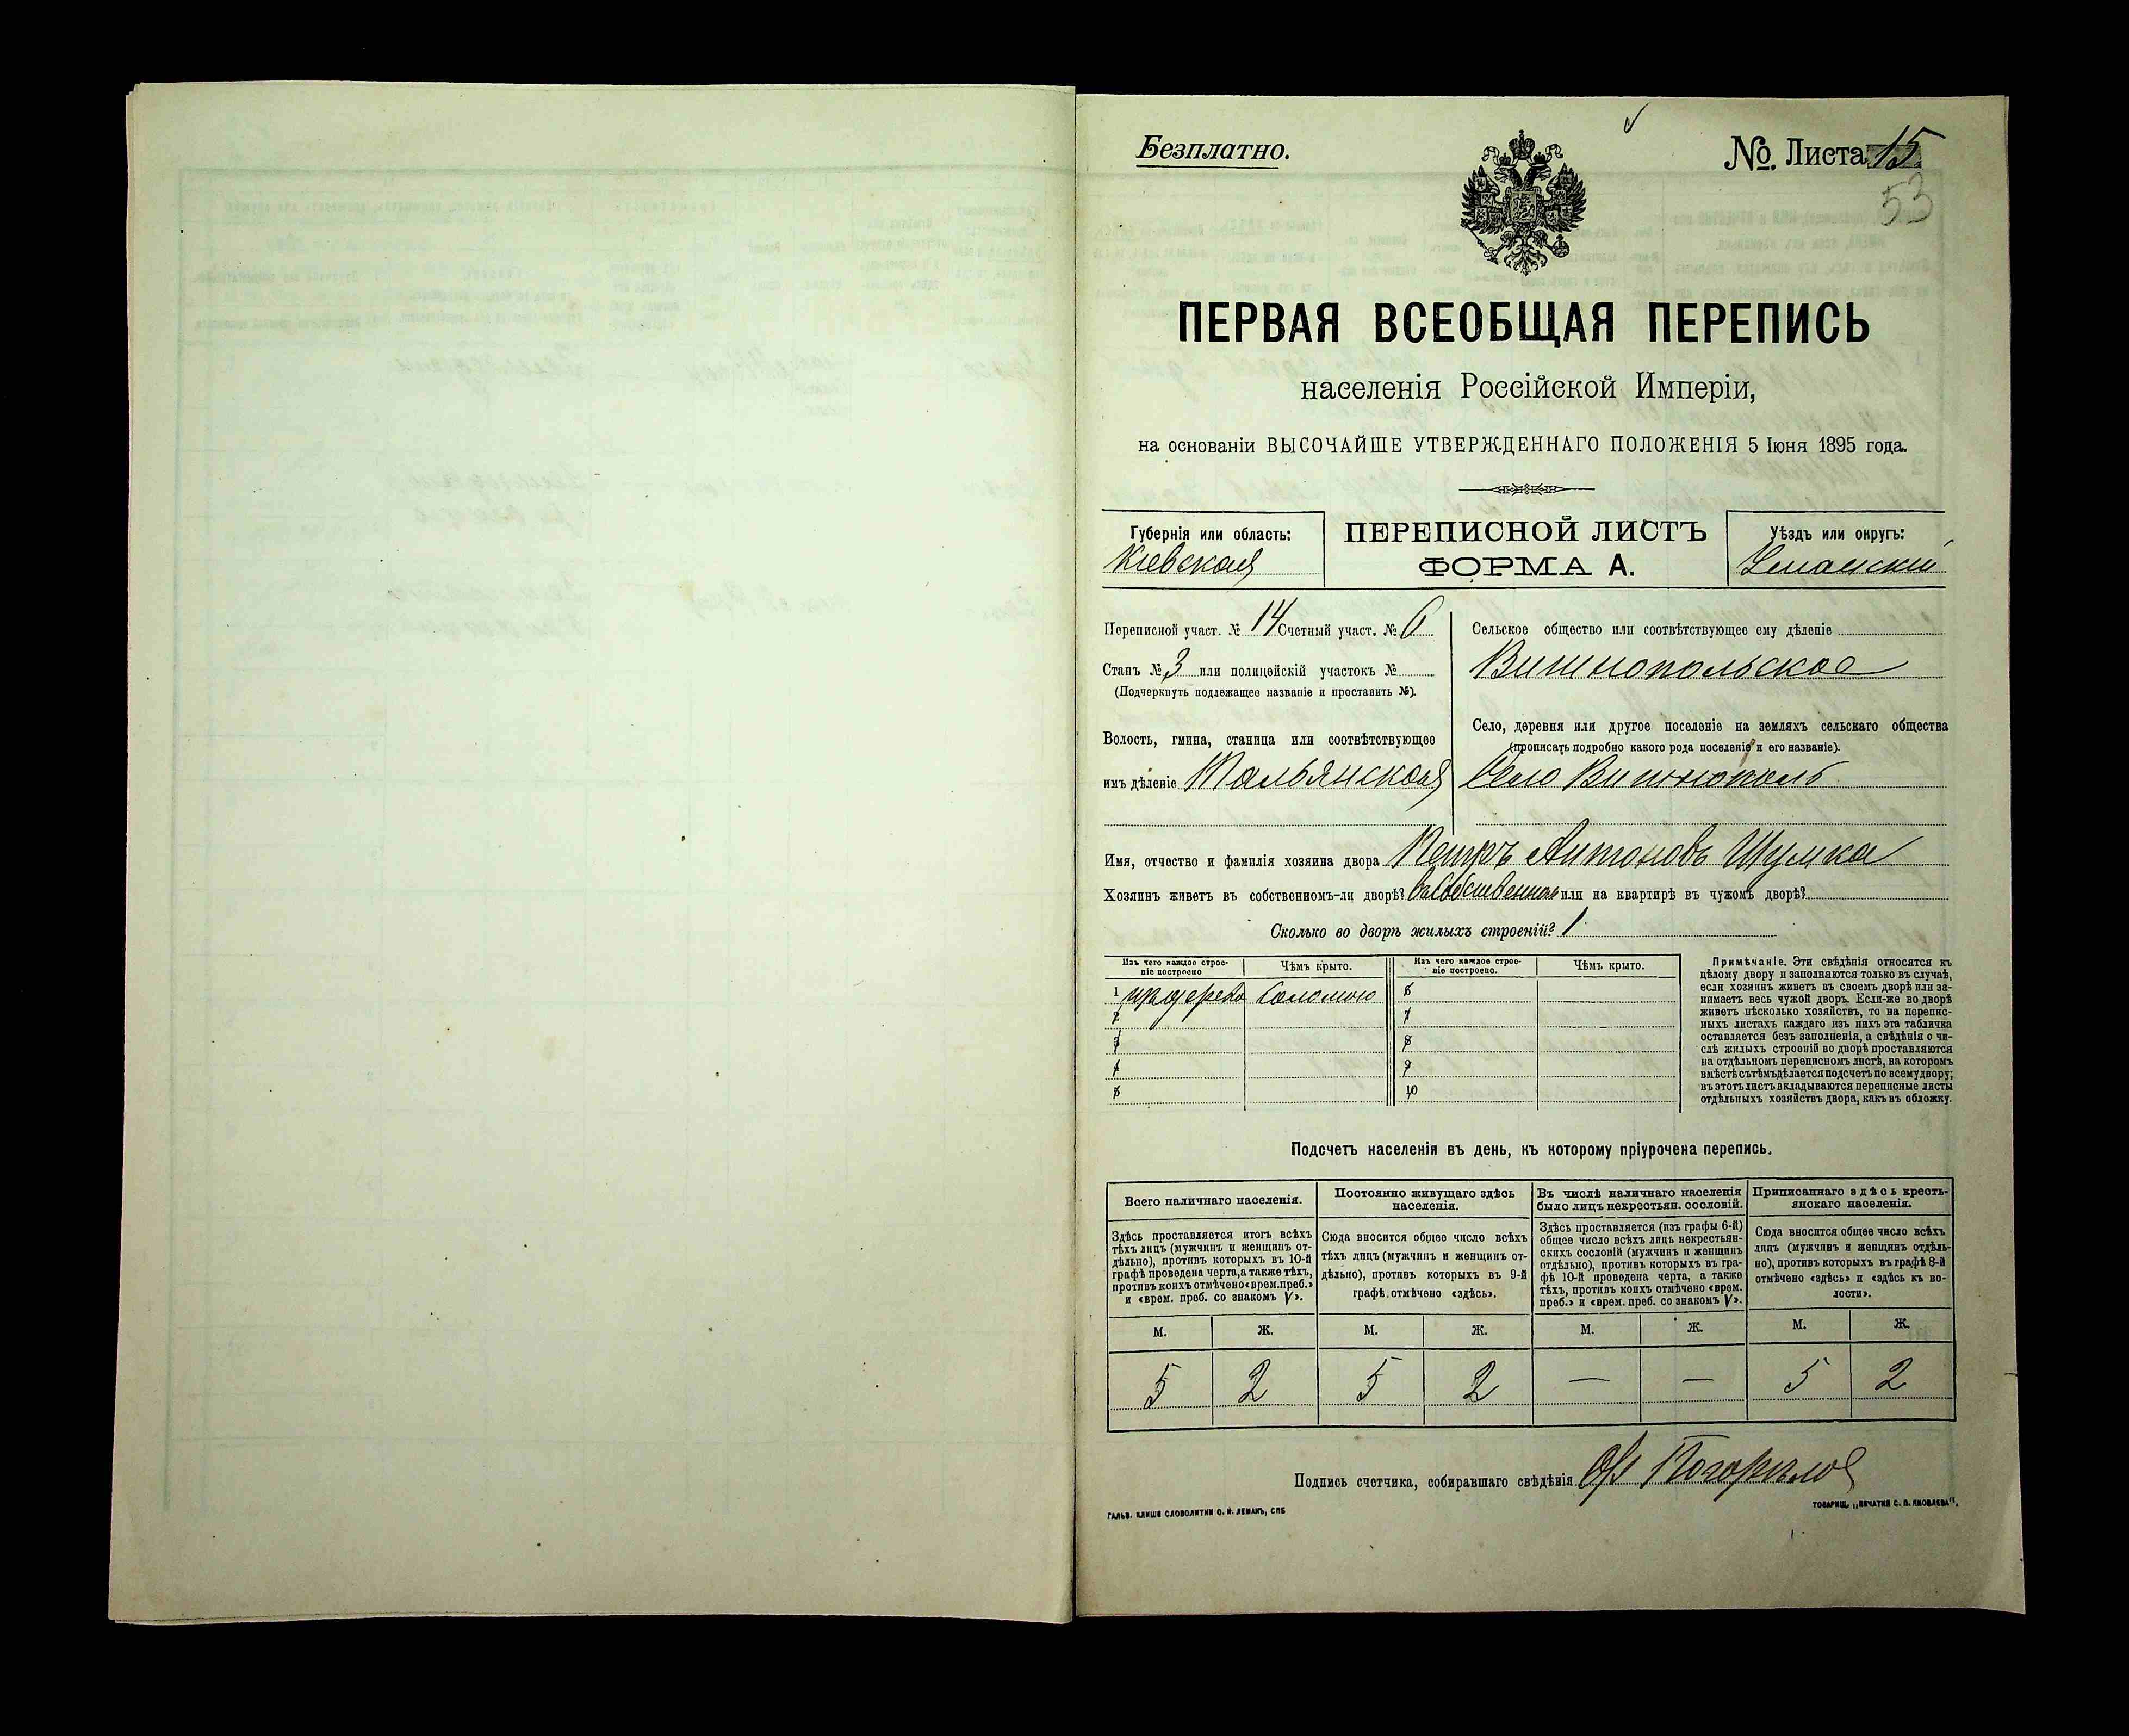 Безплатно.
№. Листа 15
53
ПЕРВАЯ ВСЕОБЩАЯ ПЕРЕПИСЬ
населенія Россійской Имперіи,
на основаніи ВЫСОЧАЙШЕ УТВЕРЖДЕННАГО ПОЛОЖЕНІЯ 5 Іюня 1895 года.
Губернія или область:
Кіевская
ПЕРЕПИСНОЙ ЛИСТЪ
ФОРМА А.
Уѣздъ или округъ:
Уманскій
Переписной участ. № 14 Счетный участ. № 6
Станъ № 3 или полицейскій участокъ №
(Подчеркнуть подлежащее названіе и проставить №).
Волость, гмина, станица или соотвѣтствующее
имъ дѣленіе Тальянская
Сельское общество или соотвѣтствующее ему дѣленіе
Вишнопольское
Село, деревня или другое поселеніе на земляхъ сельскаго общества
(прописать подробно какого рода поселеніе и его названіе).
Село Вишнополь
Имя, отчество и фамилія хозяина двора Петръ Антоновъ Шулика
Хозяинъ живетъ въ собственномъ-ли дворѣ? въ собственномъ или на квартирѣ въ чужомъ дворѣ?
Сколько во дворѣ жилыхъ строеній? 1
Изъ чего каждое строе-
ніе построено
Чѣмъ крыто.
Изъ чего каждое строе-
ніе построено.
Чѣмъ крыто.
1 изъ дерева соломою 6
2 7
3 8
4 9
5 10
Примѣчаніе. Эти свѣдѣнія относятся къ
цѣлому двору и заполняются только въ случаѣ,
если хозяинъ живетъ въ своемъ дворѣ или за-
нимаетъ весь чужой дворъ. Если-же во дворѣ
живетъ нѣсколько хозяйствъ, то на перепис-
ныхъ листахъ каждаго изъ нихъ эта табличка
оставляется безъ заполненія, а свѣдѣнія о чи-
слѣ жилыхъ строеній во дворѣ проставляются
на отдѣльномъ переписномъ листѣ, на которомъ
вмѣстѣ съ тѣмъ дѣлается подсчетъ по всему двору;
въ этотъ листъ вкладываются переписные листы
отдѣльныхъ хозяйствъ двора, какъ въ обложку.
Подсчетъ населенія въ день, къ которому пріурочена перепись.
Всего наличнаго населенія.
Здѣсь проставляется итогъ всѣхъ
тѣхъ лицъ (мужчинъ и женщинъ от-
дѣльно), противъ которыхъ въ 10-й
графѣ проведена черта, а также тѣхъ,
противъ коихъ отмѣчено «врем. преб.»
и «врем. преб. со знакомъ V».
Постоянно живущаго здѣсь
населенія.
Сюда вносится общее число всѣхъ
тѣхъ лицъ (мужчинъ и женщинъ от-
дѣльно), противъ которыхъ въ 9-й
графѣ отмѣчено «здѣсь».
Въ числѣ наличнаго населенія
было лицъ некрестьян. сословій.
Здѣсь проставляется (изъ графы 6-й)
общее число всѣхъ лицъ некрестьян-
скихъ сословій (мужчинъ и женщинъ
отдѣльно), противъ которыхъ въ гра-
фѣ 10-й проведена черта, а также
тѣхъ, противъ коихъ отмѣчено «врем.
преб.» и «врем. преб. со знакомъ V».
Приписаннаго здѣсь кресть-
янскаго населенія.
Сюда вносится общее число всѣхъ
лицъ (мужчинъ и женщинъ отдѣль-
но), противъ которыхъ въ графѣ 8-й
отмѣчено «здѣсь» и «здѣсь къ во-
лости».
М. Ж. М. Ж. М. Ж. М. Ж.
5 2 5 2 — — 5 2
Подпись счетчика, собиравшаго свѣдѣнія
ГАЛЬВ. КЛИШЕ СЛОВОЛИТНИ О. И. ЛЕМАНЪ, СПБ
ТОВАРИЩ. „ПЕЧАТНЯ С. П. ЯКОВЛЕВА".